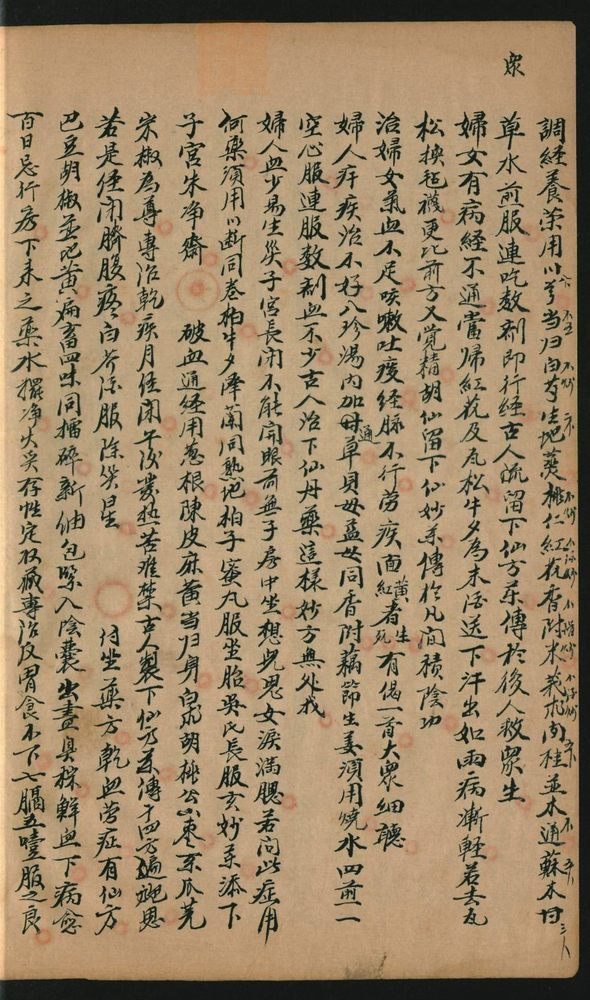 眾
調經養榮用川芎当归白芍生地黃桃仁紅花香附米莪朮肉桂並木通蘇木甘
草水煎服連吃数剂即行經古人流留下仙方茶傳於後人救眾生
婦女有病経不通當歸紅花及瓦松牛夕為末酒送下汗出如雨病漸輕若去瓦
松換毡襪更比前方又覺精胡仙留下仙妙茶傳於凡间積陰功
治婦女氣血不足咳嗽吐痰経脉不行劳疾面黃者生紅者死有偈一首大眾細聽
婦人奸疾治不好八珍湯内加通草貝母益母同香附藕節生姜須用燒水四煎一
空心服連服数剂血不少古人治下仙丹藥這樣妙方無处找
婦人血少易生災子宮長闭不能開眼前無子房中坐想兒思女淚满腮若问此症用
何藥須用川断同卷柏牛夕澤蘭同熟地柏子蜜丸服坐胎吳氏長服玄妙茶添下
子宮朱净齋 破血通経用葱根陳皮麻黃当归身白芷胡桃公山棗木瓜芫
米椒為尊專治乾疾月佳闭午後發热苦难禁古人製下仙方茶傳十四方遍飛思
若是佳闭臍腹疼白芥酒服除災星 附坐藥方乾血劳症有仙方
巴豆胡椒並地黃萹畜四味同擂碎新油包緊入陰囊出盡臭穢鮮血下病愈
百日忌行房下来之藥水擺净火炙存性定收藏專治反胃食不下七膈五噎服之良